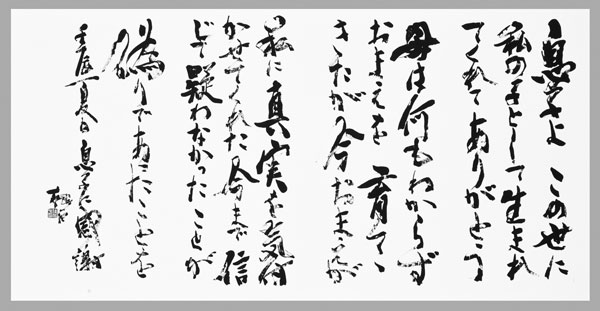 息子よ この世に
私の子として生まれ
てくれてありがとう
母は何もわからず
おまえを 育てゝ
きたが今おまえが
私に真実を気付
かせてくれた今まで信
じて疑わなかったことが
偽りであったことを
壬辰 夏日 息子に感謝